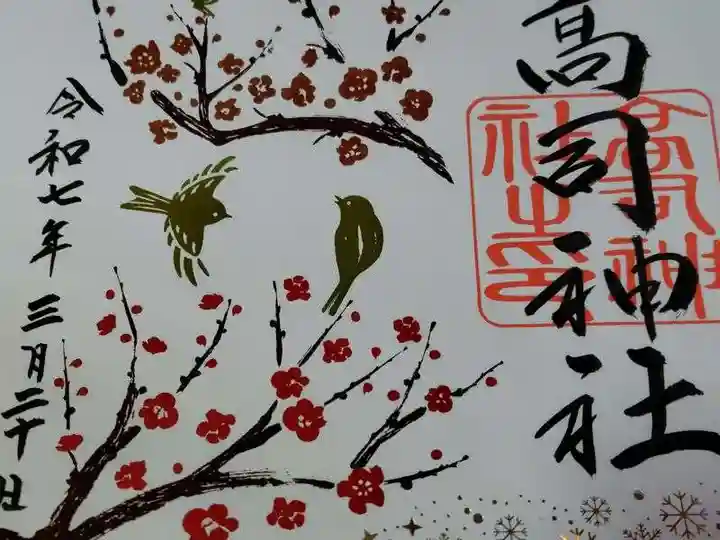 高司神社
高司神
社之印
令和七年三月二十日